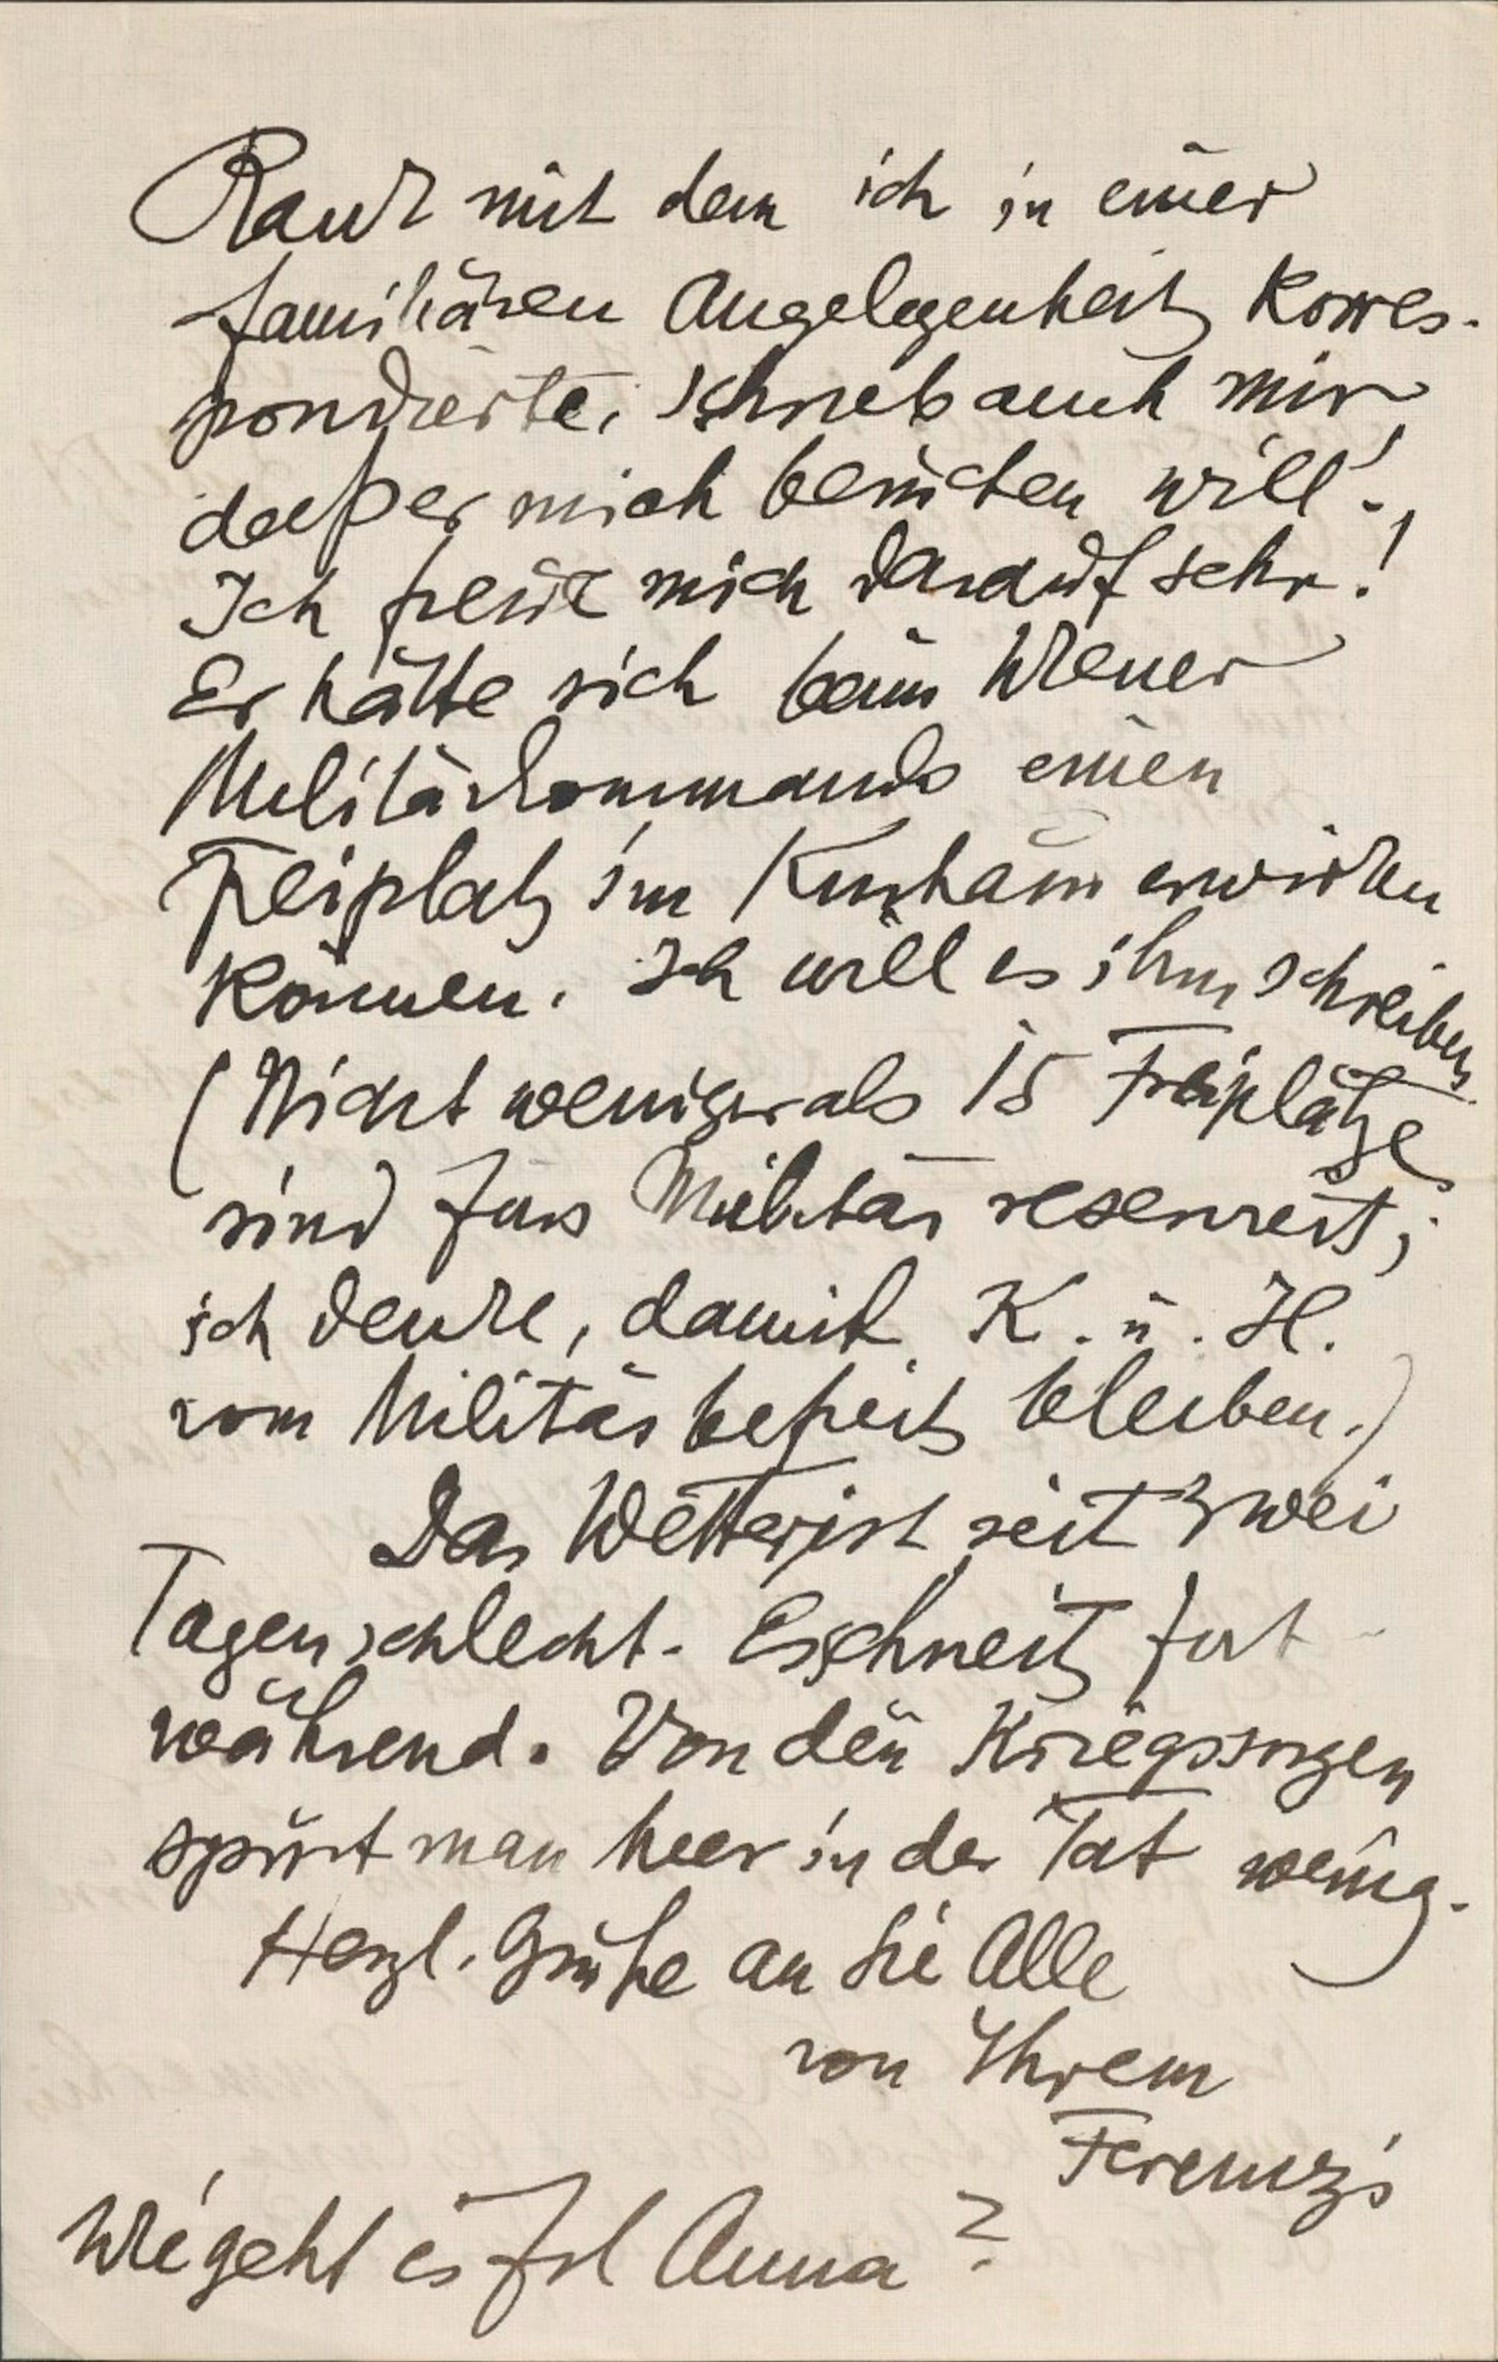 Rank mit dem ich in einer
familiären Angelegenheit korres-
pondierte, schrieb auch mir,
daß er mich besuchen will!,
Ich freue mich darauf sehr!
Er hätte sich beim Wiener
Militärkommando einen
Freiplatz im Kurhaus erwirken
können. Ich will es ihm schreiben
(Nicht weniger als 15 Freiplätze
sind fürs Militär reserviert;
ich denke, damit K. u. H.
vom Militär befreit bleiben.)
Das Wetter ist seit zwei
Tagen schlecht. Es schneit fort-
während. Von den Kriegssorgen
spürt man hier in der Tat wenig.
Herzl. Grüße an Sie Alle
von Ihrem
Ferenczi
Wie geht es Frl Anna?